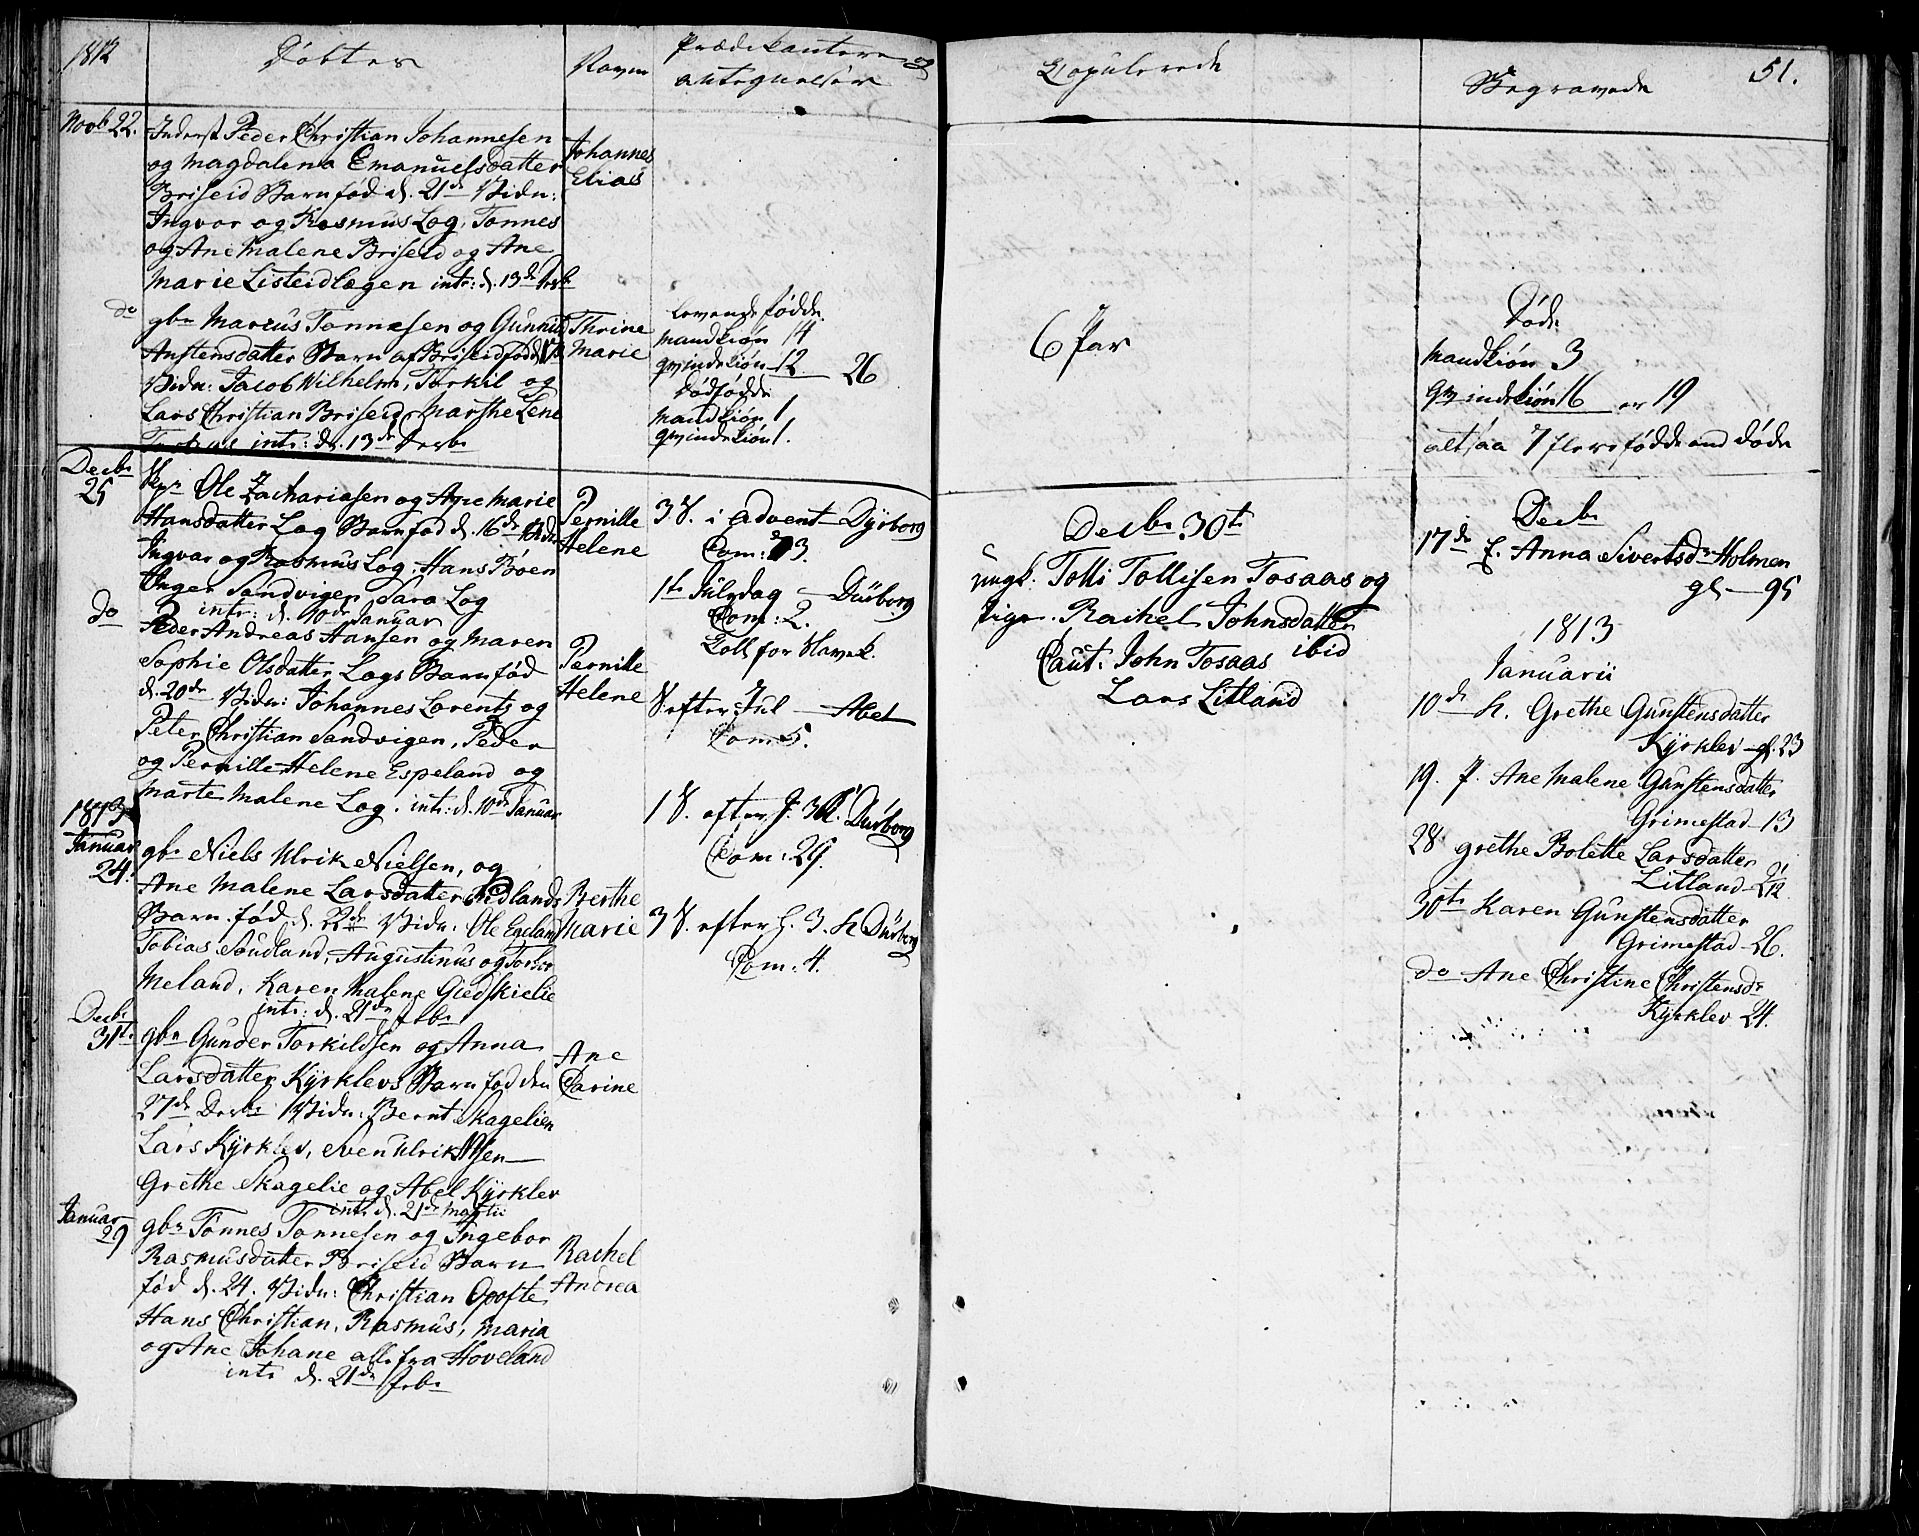 1812
Döbte
Navn
Prædikanterne og
antegnelser
Novb 22.
Inderst Peder Christian Johannesen
og Magdalena Emanuelsdatter
Briseid Barn fød d. 21de Vidn:
Ingvar og Rasmus Log, Tonnes
og Ane Malene Briseid og Ane
Marie Listeidlægen intr: d. 13de Decb
Johannes
Elias
do
gbr Marcus Tonnesen og Gunnild
Anstensdatter Barn af Briseid fødd
Vidn: Jacob Wilhelm, Torkil og
Lars Christian Briseid Marthe Lene
intr: d. 13de Decbr
Thrine
Marie
levende fødde.
Mandkiön 14
qvindekiön 12 26
Dødfødde
Mandkiön 1,
qvindekiön 1.
Decbr
25
Ole Zachariasen og Ane Marie
Hansdatter Log Barn fød d. 16de Vidn
Ingvar og Rasmus Log, Hans Böen
Inger Sandvigen Sara Log
intr: d. 10de Januar
Pernille
Helene
do
Peder Andreas Hansen og Maren
Sophie Olsdatter Logs Barn fød
d. 20de Vidn: Johannes Lorentz og
Peter Christian Sandvigen, Peder
og Pernille Helene Espeland og
Marte Malene Log. intr: d. 10de Januar
Pernille
Helene
1813
Januar
24.
gbr Niels Ulrik Nielsen, og
Ane Malene Larsdatter Fidlands
Barn fød d. 22de Vidn: Ole Egeland
Tobias Soudland, Augustinus og Torber
Meland, Karen Malene Giedskielie
intr: d. 21de Febr
Berthe
Marie
Decbr
31te
gbr Gunder Torkildsen og Anna
Larsdatter Kÿrklevs Barn fød den
27de Decbr Vidn: Bernt Skagelien
Lars Kÿrklev, Sven Ulriksen
Grethe Skagelie og Abel Kÿrklev
intr d. 21de Martii
Ane
Carine
Januar
29
gbr Tönnes Tonnesen og Ingebor
Rasmusdatter Briseid Barn
fød d. 24. Vidn: Christian Opofte
Hans Christian, Rasmus, Maria
og Ane Johane alle fra Hoveland
intr d. 21de Febr
Rachel
Andrea
3 S. i Advent Dÿrborg
Com: 13.
1te Juledag Dürborg
Com: 2.
S. efter Jul Abel
Com 5.
1 S. efter Dürborg
Com: 29.
3 S. efter h. 3 K Dürborg
Com: 4.
Copulerede
6 Par
Decbr 30te
ungk. Tolli Tollisen Tosaas og
Pige Rachel Johnsdatter
ibid
Caut: John Tosaas
Lars Litland
Begravede
51.
Døde
Mandkiön 3
Qvindekiön 16 er 19
altsaa 7 flere födde end döde
Decbr
17de E. Anna Sivertsdr Holmen
gl 95
1813
Januarii
10de K. Grethe Gunstensdatter
Kÿrklev gl. 23
19. P. Ane Malene Gunstensdatter
Grimestad 13
28. Grethe Bolette Larsdatter
Litland
30te Karen Gunstensdatter
Grimestad 26.
do Ane Christine Christensdr
Kÿrklev 24.